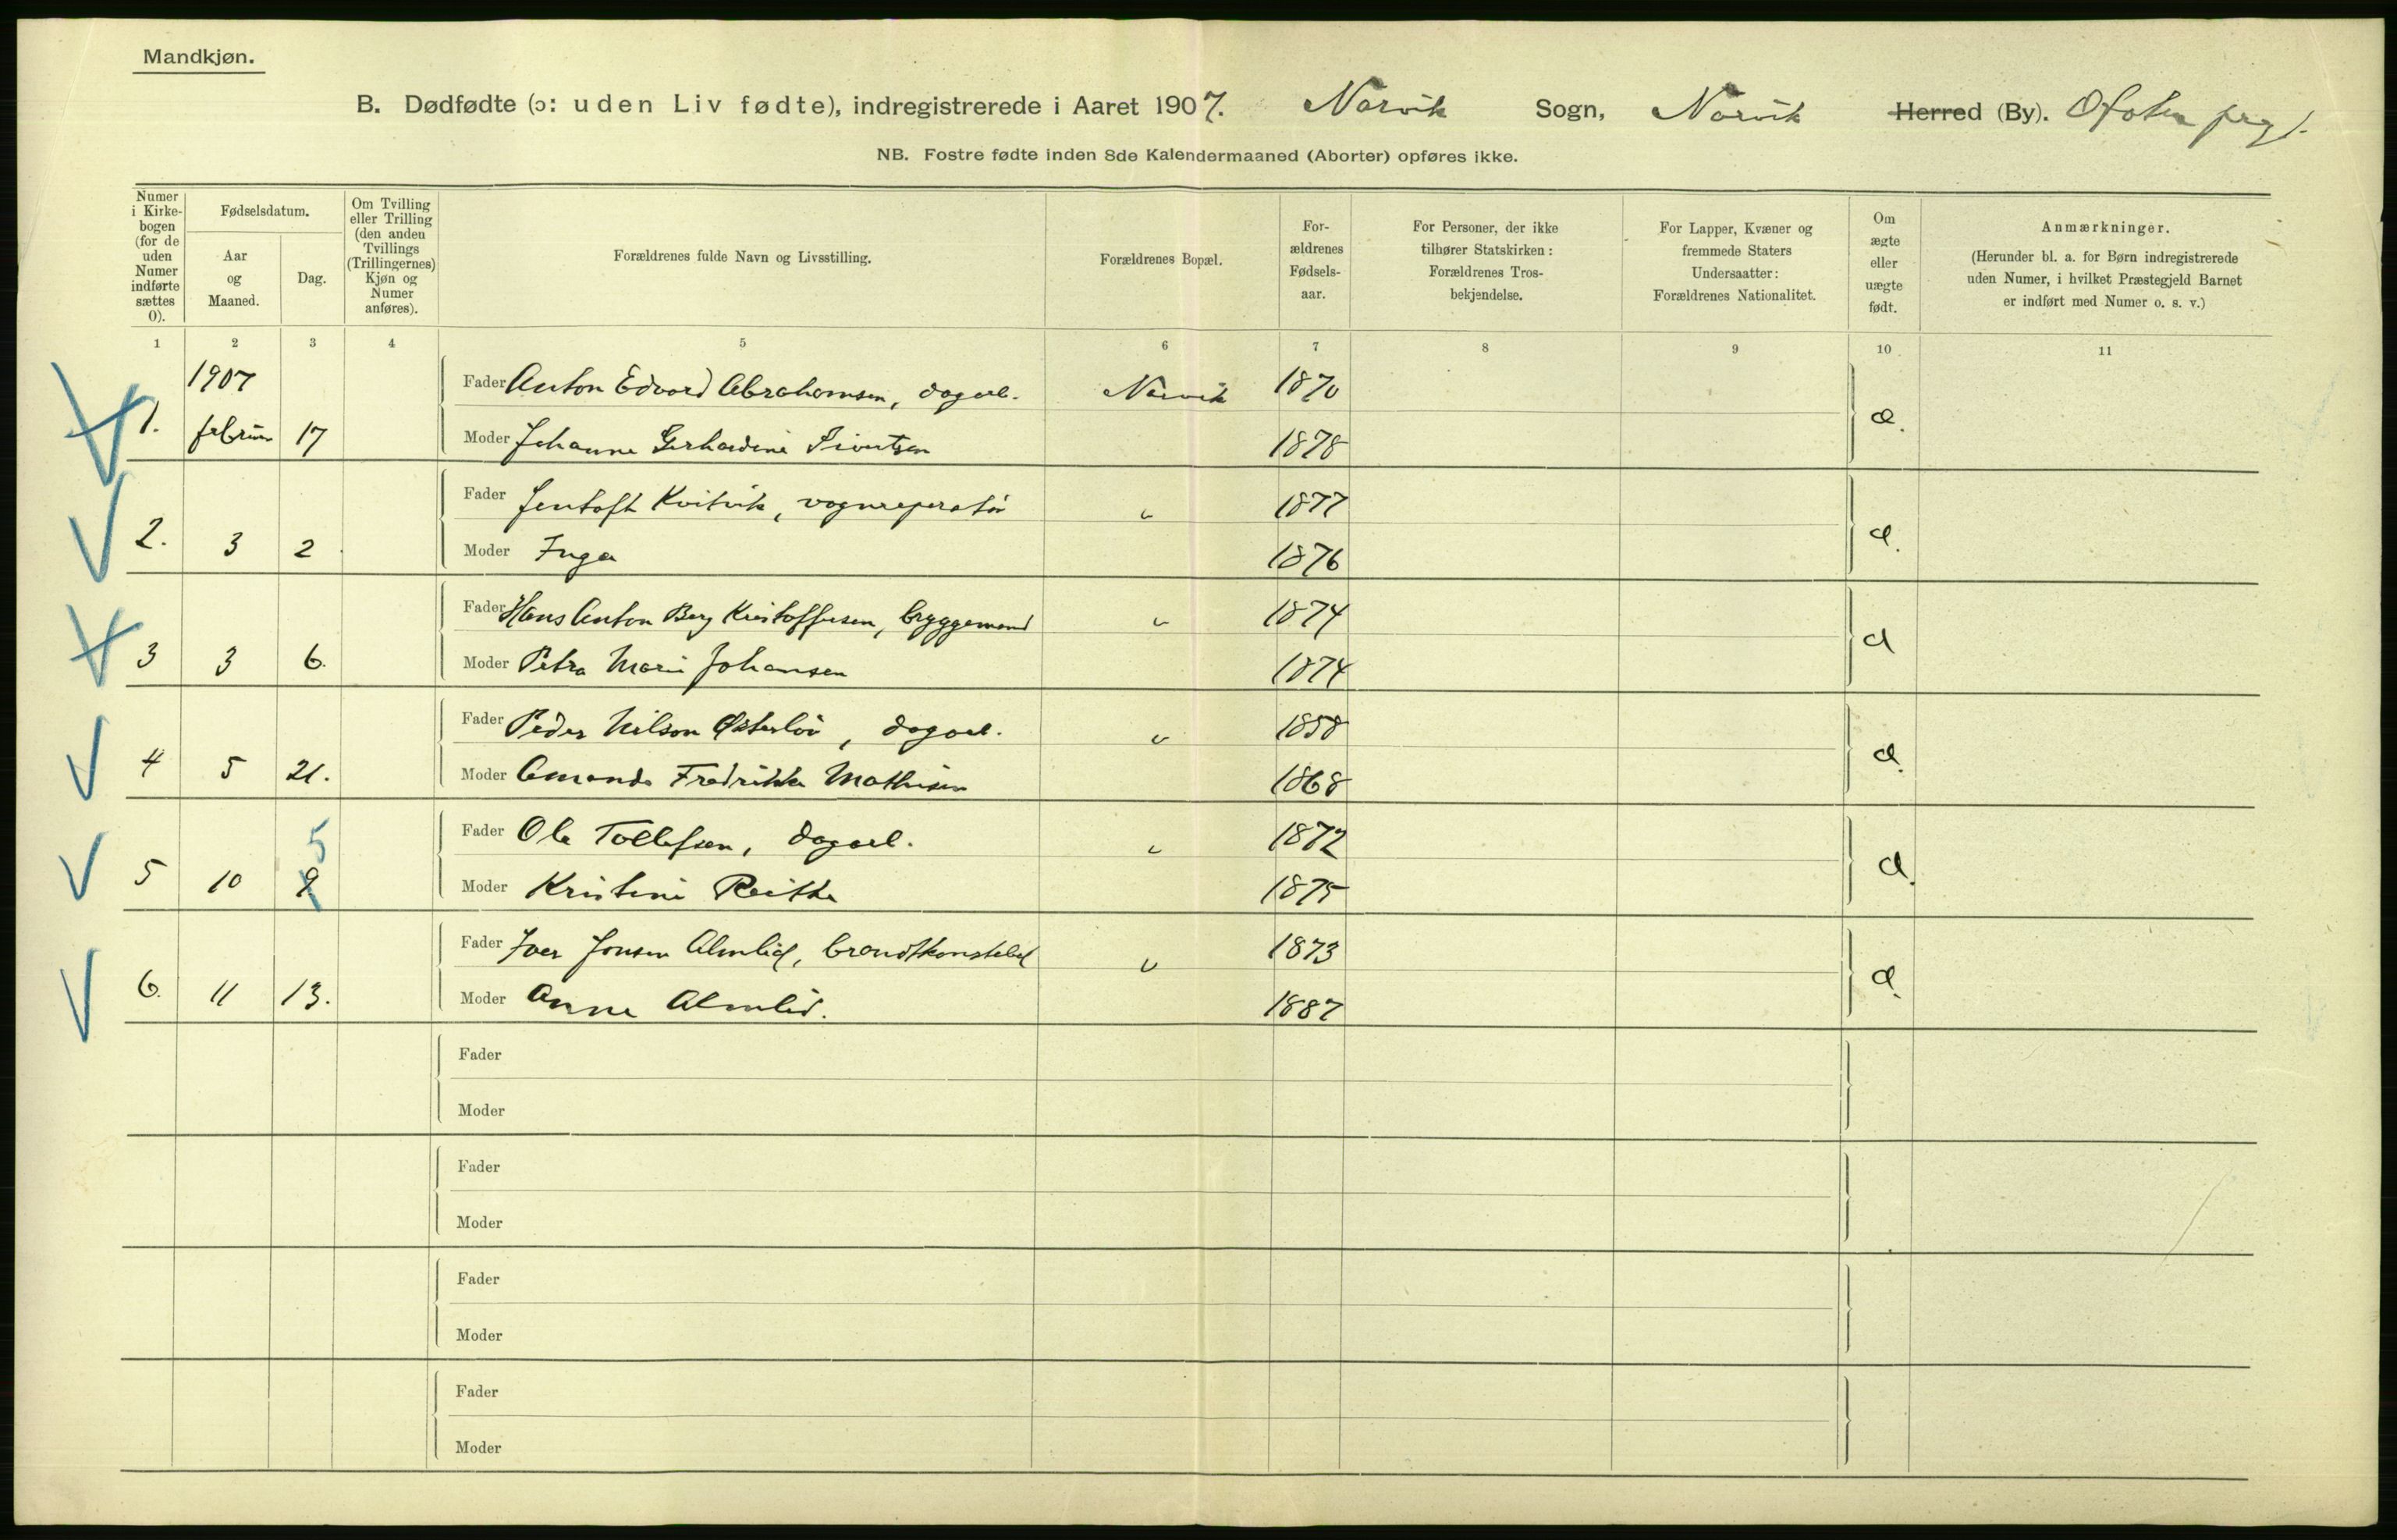 Mandkjøn.
B. Dødfødte (ɔ: uden Liv fødte), indregistrerede i Aaret 1907. Narvik Sogn, Narvik Herred (By). Ofoten prgj.
NB. Fostre fødte inden 8de Kalendermaaned (Aborter) opføres ikke.
Numer i Kirkebogen (for de uden Numer indførte sættes 0).
Fødselsdatum.
Aar og Maaned.
Dag.
Om Tvilling eller Trilling (den anden Tvillings (Trillingernes) Kjøn og Numer anføres).
Forældrenes fulde Navn og Livsstilling.
Forældrenes Bopæl.
For-ældrenes Fødsels-aar.
For Personer, der ikke tilhører Statskirken: Forældrenes Tros-bekjendelse.
For Lapper, Kvæner og fremmede Staters Undersaatter: Forældrenes Nationalitet.
Om ægte eller uægte født.
Anmærkninger.
(Herunder bl. a. for Børn indregistrerede uden Numer, i hvilket Præstegjeld Barnet er indført med Numer o. s. v.)
1 2 3 4 5 6 7 8 9 10 11
1907
Fader Anton Edvard Abrahamsen, dagarb. Narvik 1870
1. februar 17 Moder Johanne Gerhardine Sivertsen 1878 æ.
Fader Jentoft Kvitvik, vognreperatør " 1877
2. 3 2 Moder Inga 1876 æ.
Fader Hans Anton Berg Kristoffersen, bryggemand " 1874
3 3 6. Moder Petra Marie Johansen 1874 æ
Fader Peder Nilson Østerlöv, dagarb. " 1858
4 5 21. Moder Amanda Fredrikke Mathisen 1868 æ.
Fader Ole Tollefsen, dagarb. " 1872
5
5 10 9 Moder Kristine Reitke 1875 æ.
Fader Iver Jonsen Almlid, brandkonstabel " 1873
6. 11 13. Moder Anna Almlid. 1887 æ.
Fader
Moder
Fader
Moder
Fader
Moder
Fader
Moder